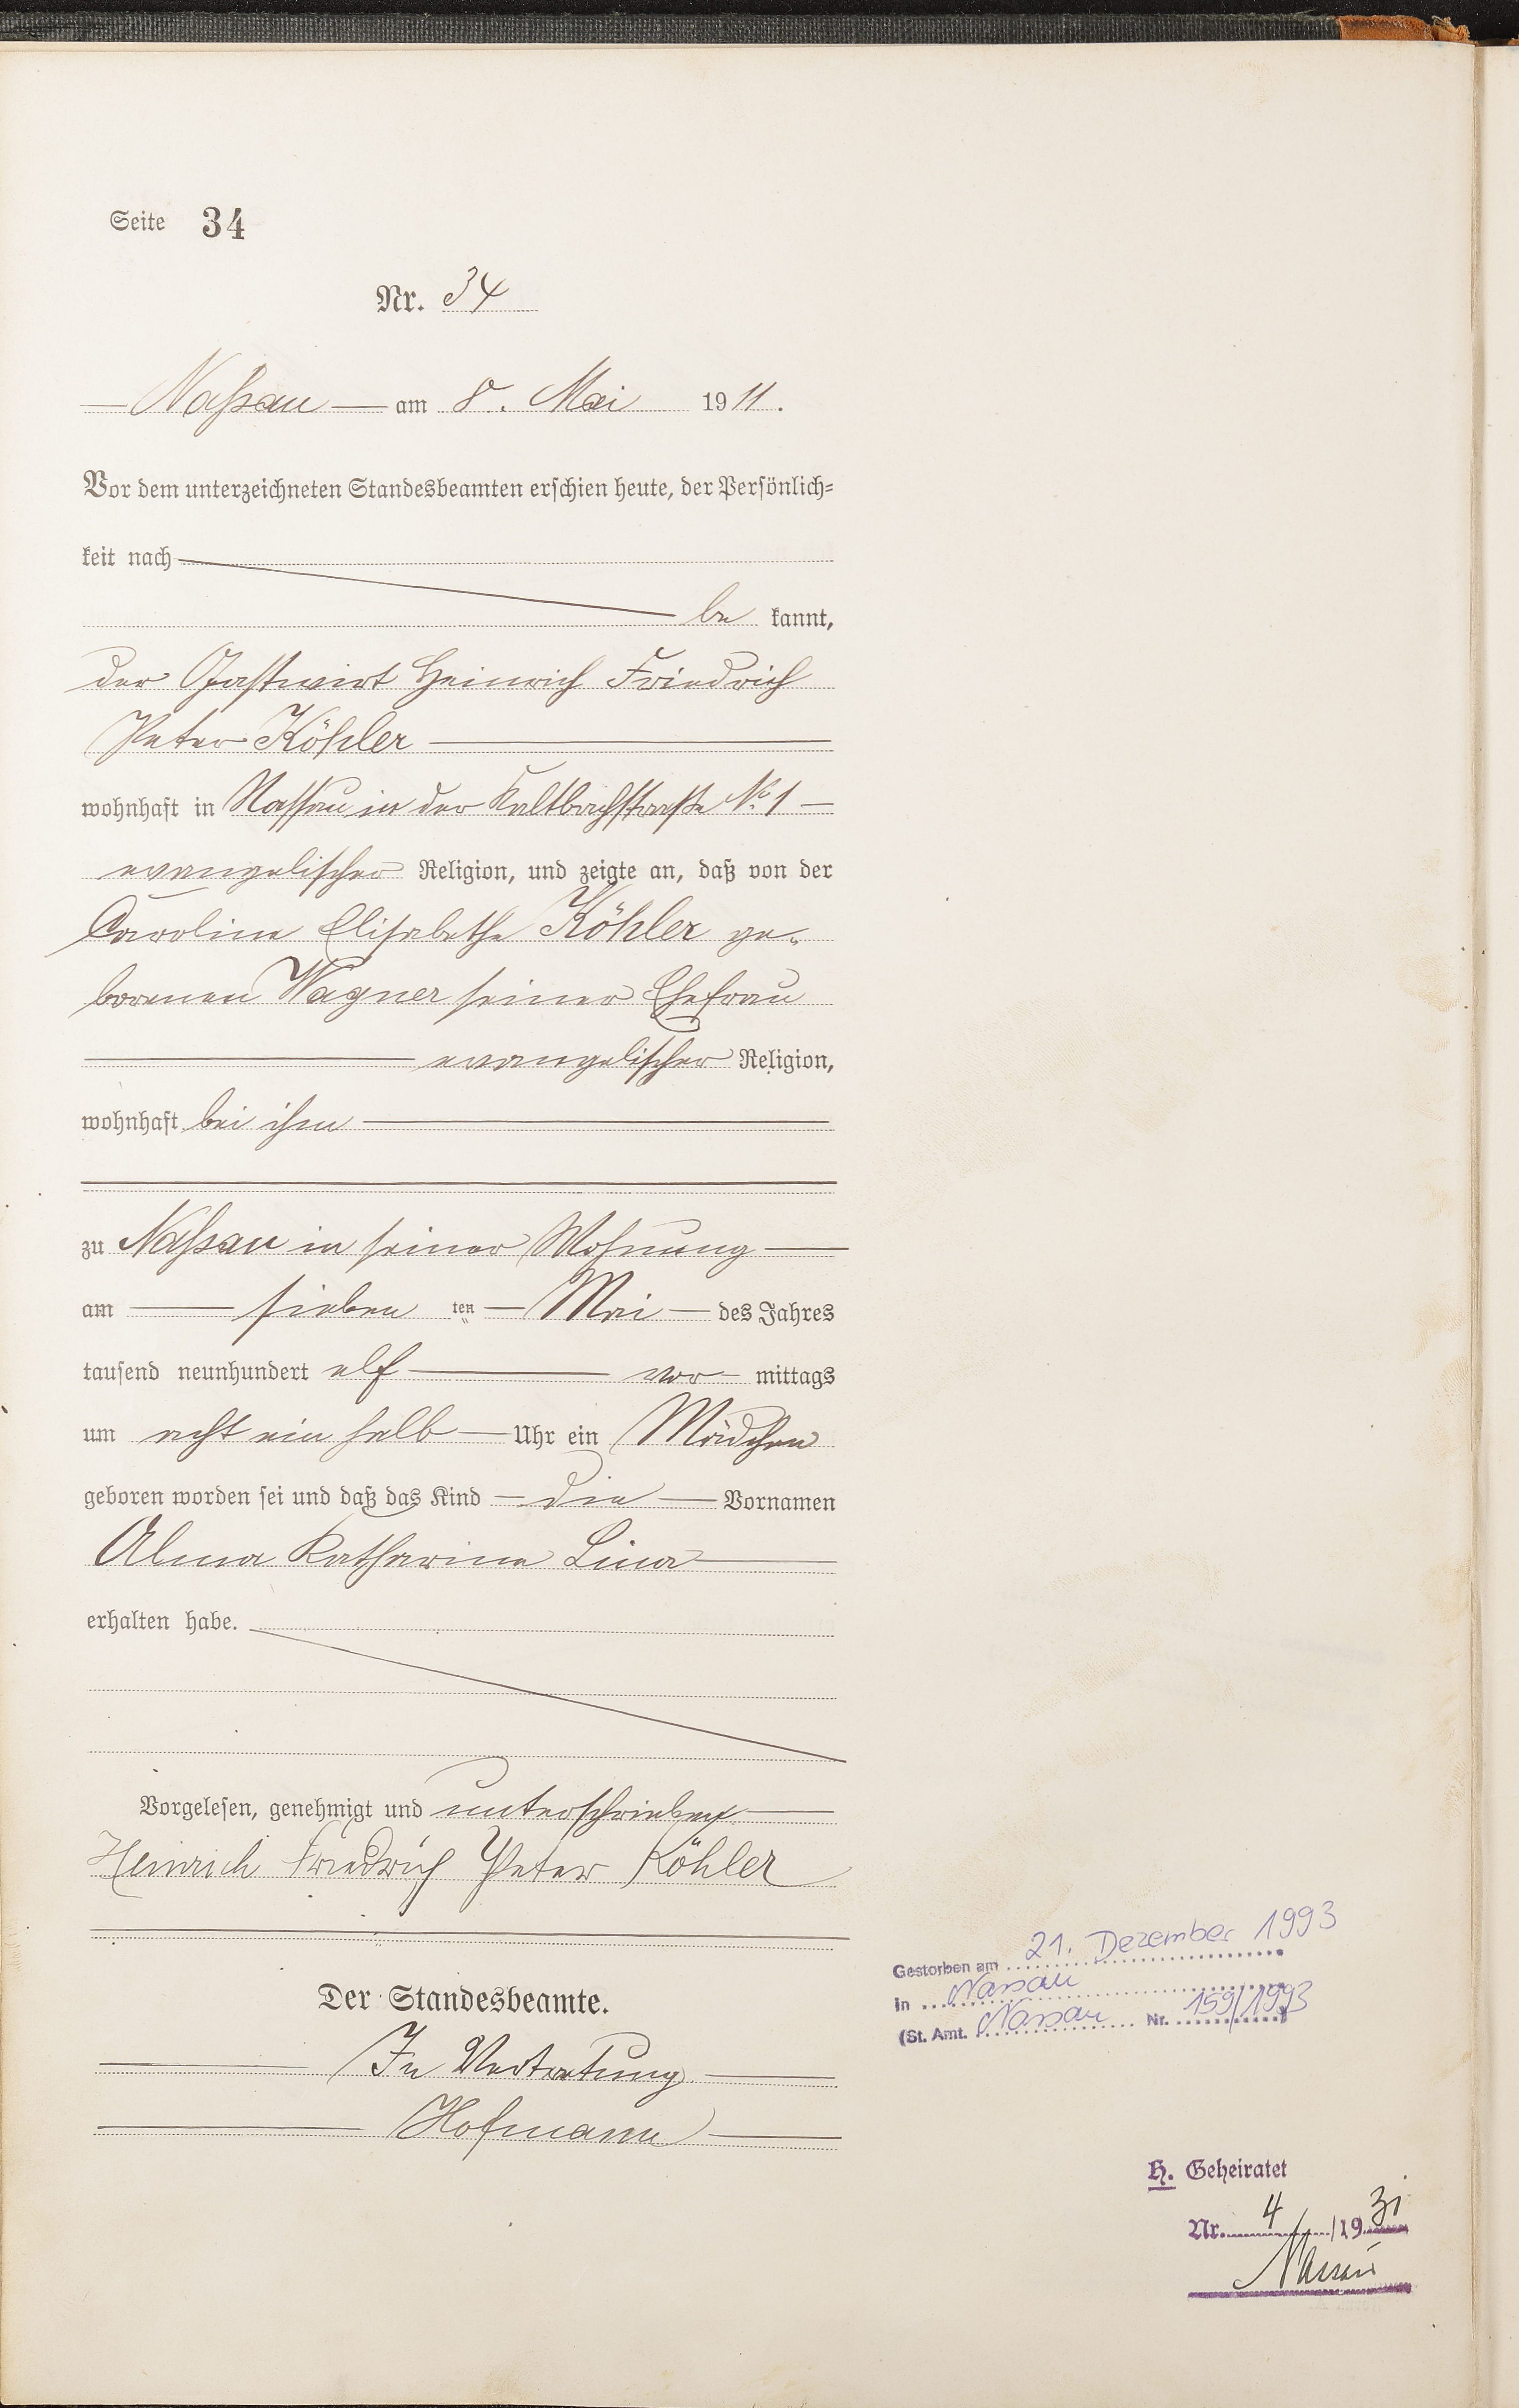 Seite 34
Nr. 34
Naßau am 8. Mai 1911.
Vor dem unterzeichneten Standesbeamten erschien heute, der Persönlich=
keit nach
be kannt,
der Gastwirt Heinrich Friedrich
Peter Köhler
wohnhaft in Nassau in der Kaltbachstraße No. 1
evangelischer Religion, und zeigte an, daß von der
Caroline Elisabethe Köhler ge-
borenen Wagner seiner Ehefrau
evangelischer Religion,
wohnhaft bei ihm
zu Naßau in seiner Wohnung
am sieben ten Mai des Jahres
tausend neunhundert elf vor mittags
um acht ein halb Uhr ein Mädchen
geboren worden sei und daß das Kind die Vornamen
Alma Katharina Lina
erhalten habe.
Vorgelesen, genehmigt und unterschrieben
Heinrich Friedrich Peter Köhler
Der Standesbeamte.
In Vertretung
Hofmann
Gestorben am 21. Dezember 1993
In Nassau
(St. Amt. Nassau Nr. 159/1993)
H. Geheiratet
Nr. 4 /1931
Nassau